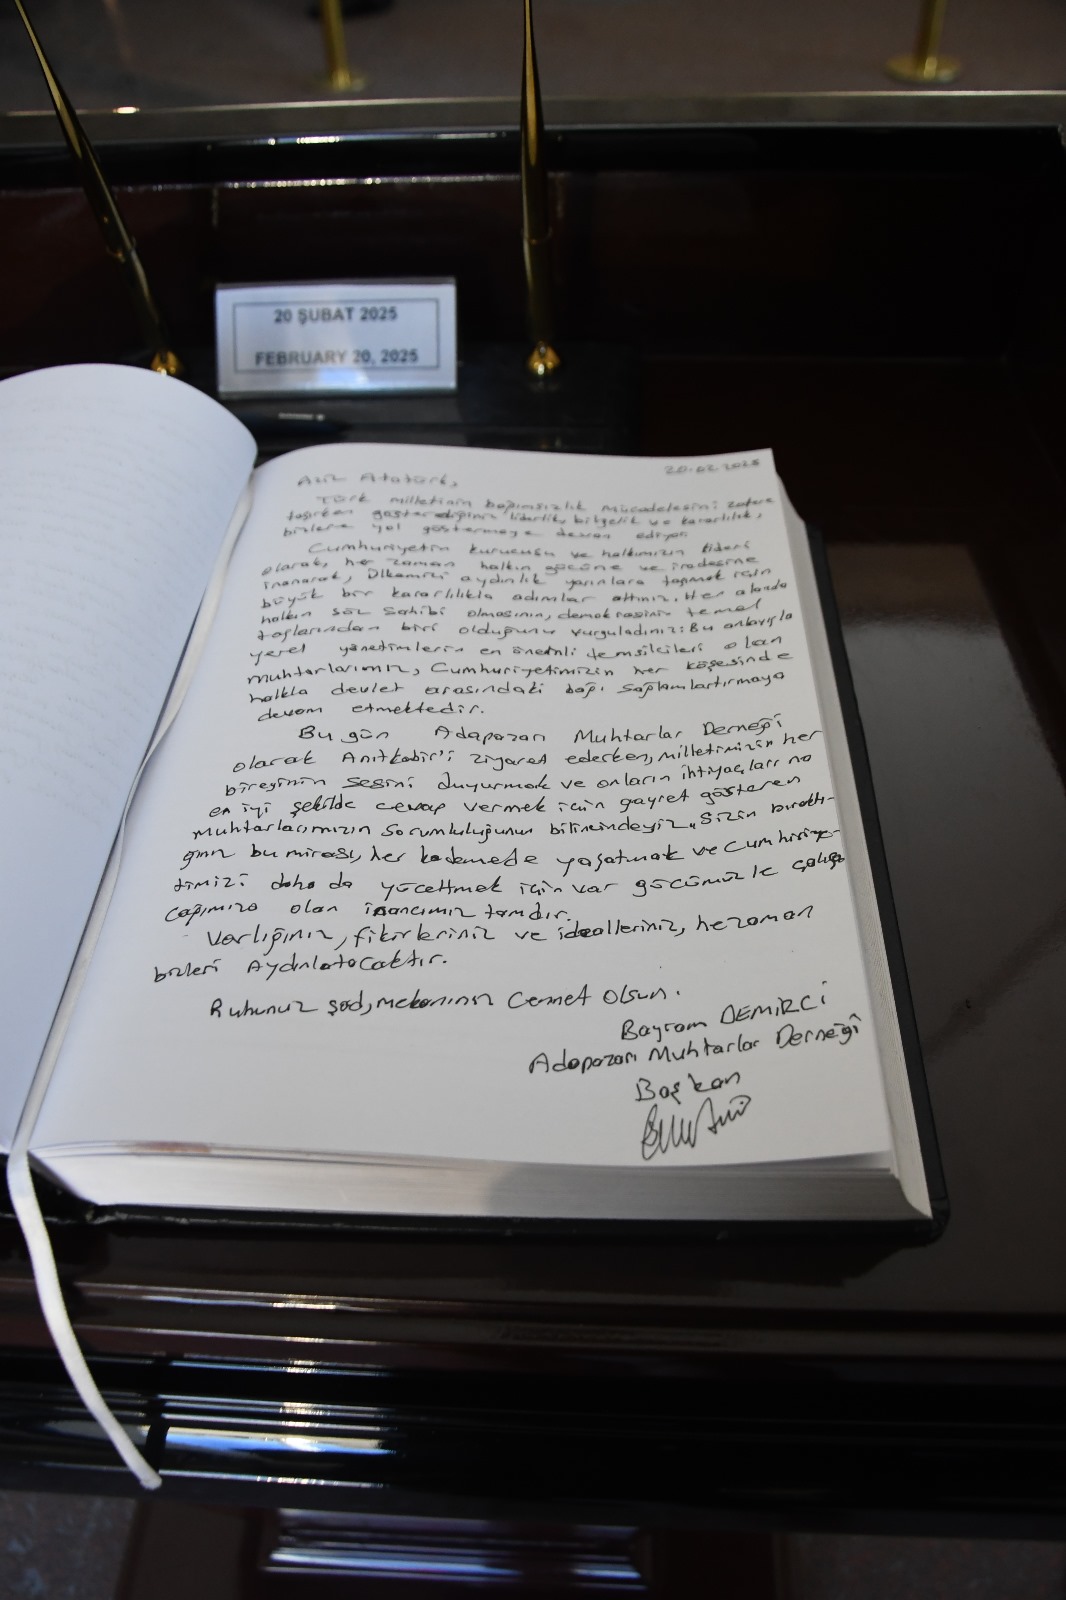 20 ŞUBAT 2025
FEBRUARY 20, 2025
20.02.2025
Aziz Atatürk,
Türk milletinin bağımsızlık mücadelesini zafere
taşırken gösterdiğiniz liderlik, bilgelik ve kararlılık,
bizlere yol göstermeye devam ediyor.
Cumhuriyetin kurucusu ve halkımızın lideri
olarak, her zaman halkın gücüne ve iradesine
inanarak, Ülkemizi aydınlık yarınlara taşımak için
büyük bir kararlılıkla adımlar attınız. Her alanda
halkın söz sahibi olmasının, demokrasinin temel
taşlarından biri olduğunu vurguladınız. Bu anlayışla
yerel yönetimlerin en önemli temsilcileri olan
muhtarlarımız, Cumhuriyetimizin her köşesinde
halkla devlet arasındaki bağı sağlamlaştırmaya
devam etmektedir.
Bu gün Adapazarı Muhtarlar Derneği
olarak Anıtkabir'i ziyaret ederken, milletimizin her
bireyinin sesini duyurmak ve onların ihtiyaçlarına
en iyi şekilde cevap vermek için gayret gösteren
muhtarlarımızın sorumluluğunun bilincindeyiz. Sizin bıraktı-
ğınız bu mirası, her kademede yaşatmak ve Cumhuriye-
timizi daha da yüceltmek için var gücümüzle çalışa
cağımıza olan inancımız tamdır.
Varlığınız, fikirleriniz ve idealleriniz, her zaman
bizleri Aydınlatacaktır.
Ruhunuz şad, mekanınız Cennet Olsun.
Bayram DEMİRCİ
Adapazarı Muhtarlar Derneği
Başkan